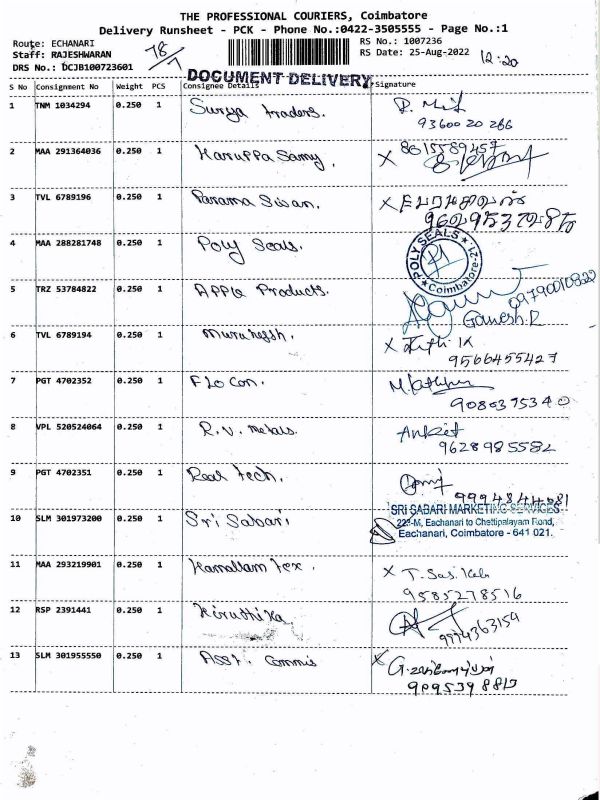 THE PROFESSIONAL COURIERS, Coimbatore
Delivery Runsheet - PCK - Phone No.:0422-3505555 - Page No.:1
Route: ECHANARI
RS No.: 1007236
Staff: RAJESHWARAN
RS Date: 25-Aug-2022
12:20
DRS No.: DCJB100723601
DOCUMENT DELIVERY
S No Consignment No Weight PCS Consignee Details Signature
1 TNM 1034294 0.250 1 Surya traders.
93600 20 266
2 MAA 291364036 0.250 1 Karuppa Samy,
8015589457
3 TVL 6789196 0.250 1 Parama Sivan.
4 MAA 288281748 0.250 1 Poly Seals.
POLY SEALS
Coimbatore-21
5 TRZ 53784822 0.250 1 Apple Products.
09790010822
Ganesh.R
6 TVL 6789194 0.250 1 Murugesh.
9566455427
7 PGT 4702352 0.250 1 Flo Con.
9080375340
8 VPL 520524064 0.250 1 R.V. Metals. Ankit
9628985582
9 PGT 4702351 0.250 1 Real tech.
9994844581
10 SLM 301973200 0.250 1 Sri Sabari.
SRI SABARI MARKETING SERVICES
223-M, Eachanari to Chettipalayam Road,
Eachanari, Coimbatore - 641 021.
11 MAA 293219901 0.250 1 Kamallam tex. X T. Sasikala
9585278516
12 RSP 2391441 0.250 1 Kiruthika.
9994363159
13 SLM 301955550 0.250 1 Asst. Commis
9095398817